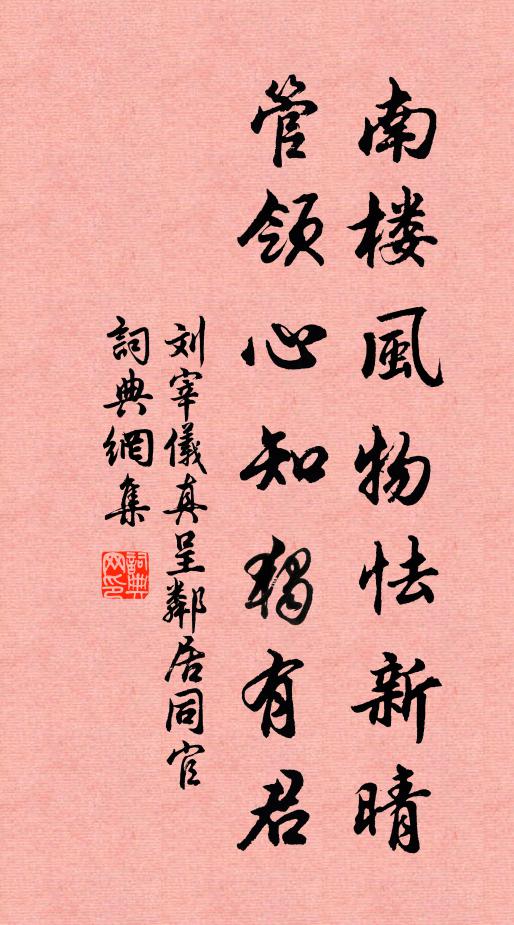 南楼風物怯新晴
管領心知獨有君
刘宰儀真呈鄰居同官
詞典網集
詞典網印